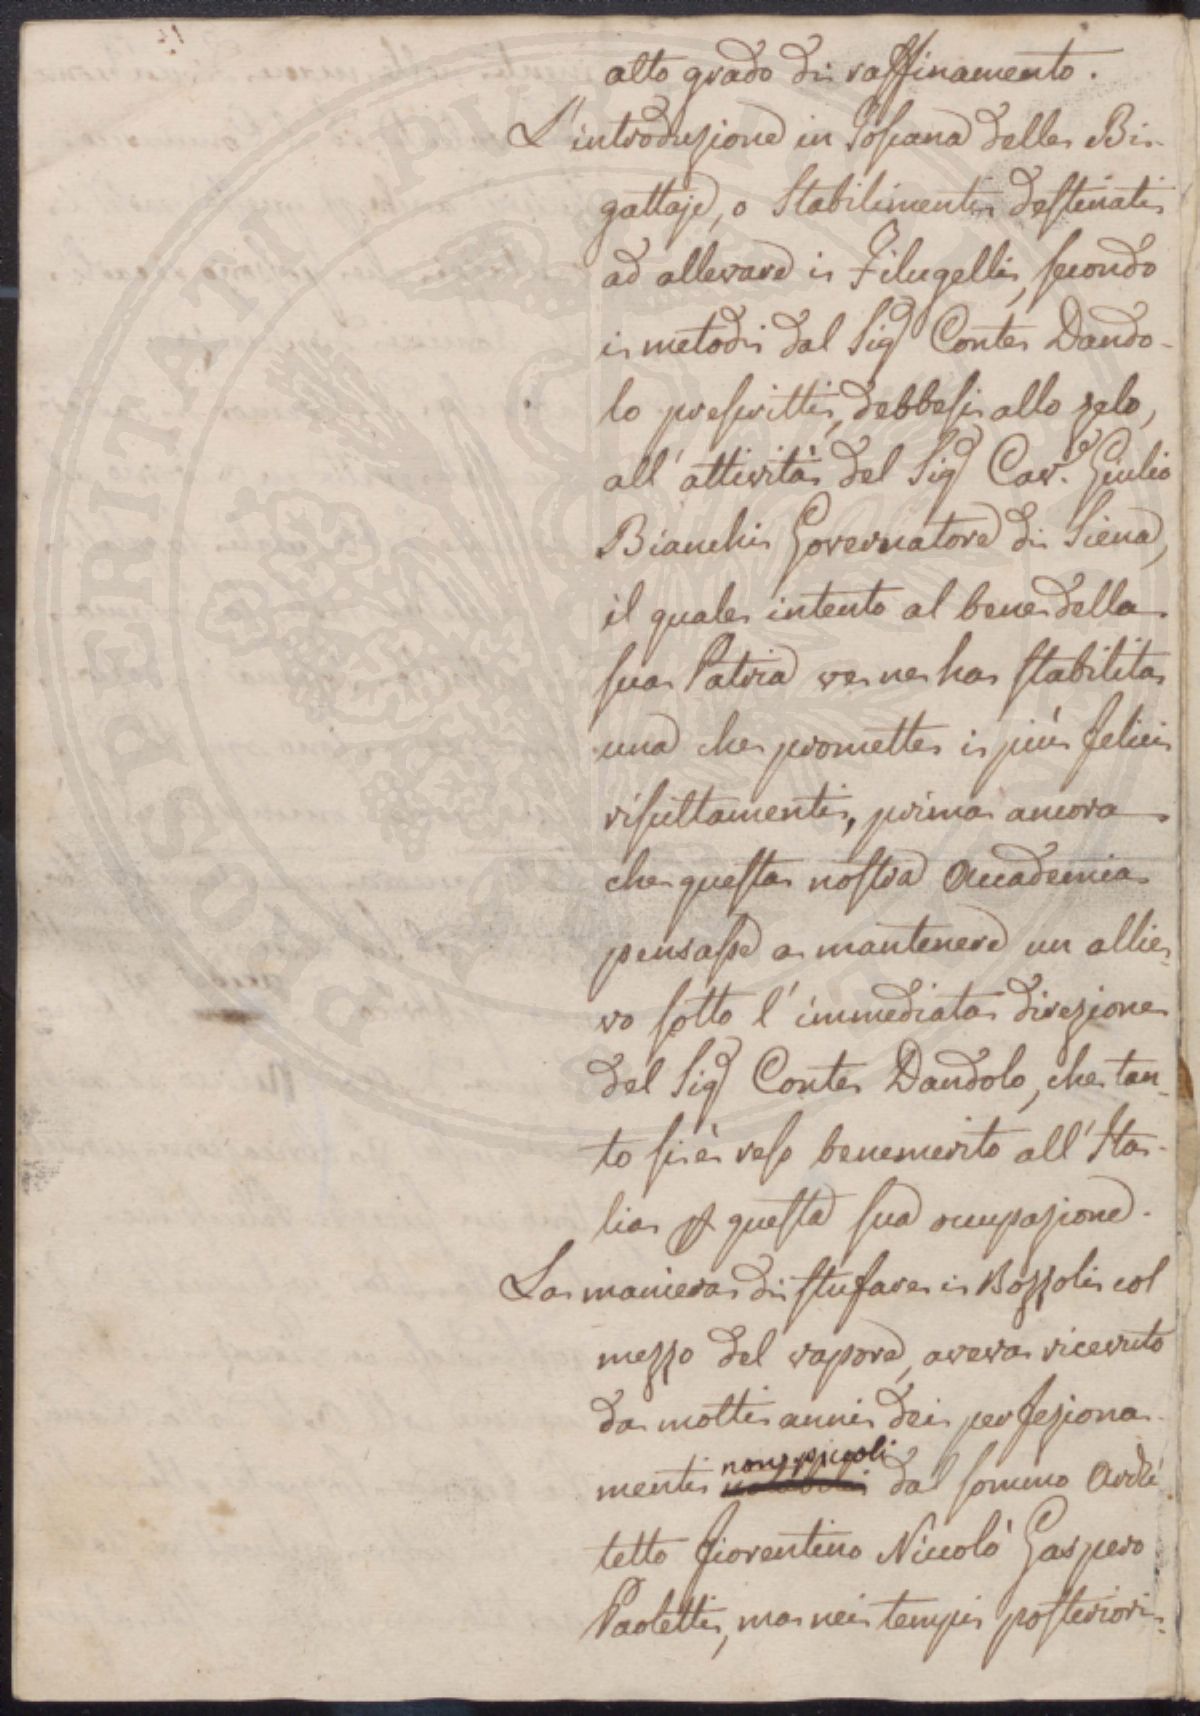 alto grado di raffinamento.
L'introduzione in Toscana delle Bi-
gattaje, o Stabilimenti destinati
ad allevare i Filugelli, secondo
i metodi dal Sig Conte Dando-
lo prescritti, debbesi allo zelo,
all'attività del Sig Cav.e Giulio
Bianchi Governatore di Siena,
il quale intento al bene della
sua Patria ve ne ha stabilita
una che promette i più felici
risultamenti, prima ancora
che questa nostra Accademia
pensasse a mantenere un allie-
vo sotto l'immediata direzione
del Sig Conte Dandolo, che tan-
to si è reso benemerito all'Ita-
lia p questa sua occupazione.
La maniera di stufare i Bozzoli col
mezzo del vapore, aveva ricevuto
da molti anni dei perfeziona-
non piccoli
menti dal sommo Archi
tetto fiorentino Niccolò Gaspero
Paoletti, ma nei tempi posteriori
PROSPERITATI PUBLICAE